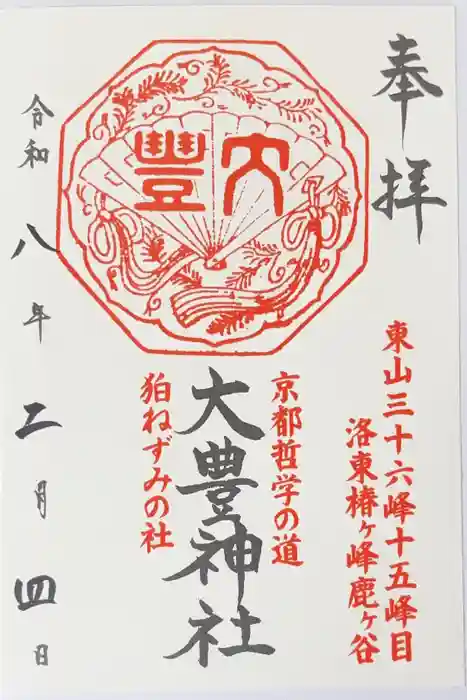 奉拝
東山三十六峰十五峰目
洛東椿ヶ峰鹿ヶ谷
京都哲学の道
大豊
大豐神社
狛ねずみの社
令和八年二月四日